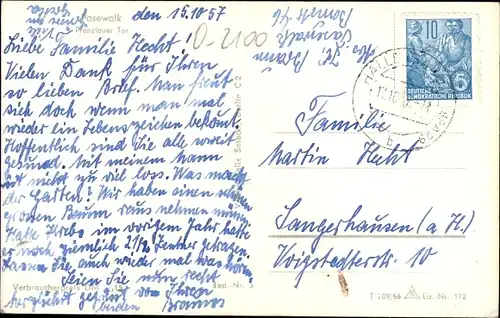 Pasewalk
Prenzlauer Tor
den 15.10.57
Liebe Familie Hecht!
Vielen Dank für Ihren
so lieben Brief. Man freut
sich doch wenn man mal
wieder ein Lebenszeichen bekommt.
Hoffentlich sind die alle soweit
gesund. Mit meinem Mann
ist nicht zu viel los. Was macht
der Garten? Wir haben einen schönen
grossen Baum raus nehmen müssen
Hatte im vorigem Jahr hatte
er noch ziemlich 21/2 Zentner getragen.
Lassen Sie auch wieder mal was hören
Seien Sie nun recht
herzlichst gegrüßt von Ihren
beiden
Verbraucherpreis DM
O-2100
10
DEUTSCHE
DEMOKRATISCHE REPUBLIK
HALLE
Familie
Martin Hecht
Sangerhausen (a. H.)
Voigtstedterstr. 10
T 209/56 Liz.-Nr. 172